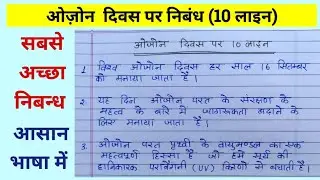 ओज़ोन दिवस पर निबंध (10 लाइन)
सबसे
अच्छा
निबन्ध
आसान
भाषा में
ओजोन दिवस पर 10 लाइन
1. विश्व ओजोन दिवस हर साल 16 सितम्बर
को मनाया जाता है।
2. यह दिन ओजोन परत के संरक्षण के
महत्व के बारे में जागरूकता बढ़ाने के
लिए मनाया जाता है।
3. ओजोन परत पृथ्वी के वायुमण्डल का एक
महत्वपूर्ण हिस्सा है जो हमे सूर्य की
हानिकारक पराबैंगनी (UV) किरणों से बचाती है।